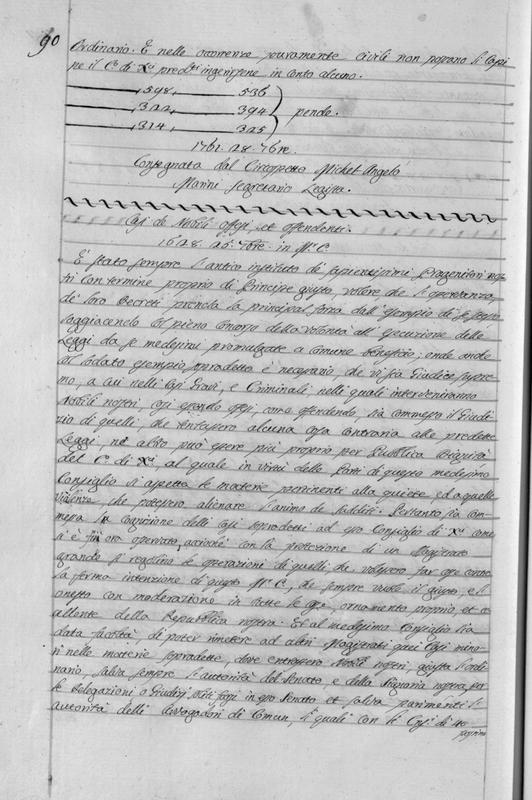 90
Ordinario. E nelle occorrenze puramente civili non possano li Capi
ne il C.º di X.ci pred.to ingerirsene in conto alcuno.
598, 536
322, 394 pende.
314 325
1761. 28. 7bre.
Consegnata dal Circospetto Michel Angelo
Marini Segretario Legista.
Casi de Nobili offesi, et offendenti.
1628. ad. 7bre. in M.r C.
È stato sempre l'antico instituto de sapientissimi Progenitori nos-
tri con termine proprio di Principe giusto, volere che l'osservanza
de' loro Decreti prenda la principal forza dall'esempio di se stessi
soggiacendo col pieno concorso della volontà all'esecuzione delle
Leggi da se medesimi promulgate a comune beneficio; onde anche
col lodato esempio sopradetto è necessario, che vi sia Giudice supre-
mo, a cui nelli Casi Gravi, e Criminali nelli quali interveniranno
Nobili nostri, così essendo offesi, come offendendo, sia commesso il Giudi-
zio di quelli, che tentassero alcuna cosa contraria alle predette
Leggi, nè altro può essere più proprio per Pubblica dignità
del C.º di X.ci al quale in virtù della Parti di questo medesimo
Consiglio si aspetta le materie pertinenti alla quiete, ed a quelle
violenze, che potessero alienare l'animo de sudditi. Pertanto sia com-
messa la cognizione delli Casi sopradetti ad esso Consiglio di X.ci come
si è fin ora operato, acciochè con la protezione di un Magistrato
grande si regolino le operazioni di quelli che volessero far cose contro
la ferma intenzione di questo M.r C., che sempre vuole il giusto, e l'
onesto con moderazione in tutte le cose, ornamento proprio, et ec-
cellente della Repubblica nostra. Ed al medesimo Consiglio sia
data facoltà di poter rimetere ad altri Magistrati quei Casi mino-
ri nelle materie sopradette, dove entrassero Nobili nostri, giusta l'ordi-
nario, salva sempre l'autorità del Senato, e della Signoria nostra, per
le delegazioni o Giudizj soliti farsi in esso Senato et salva parimenti l'
autorità delli Avvogadori di Comun, li quali con li Con.i di 40